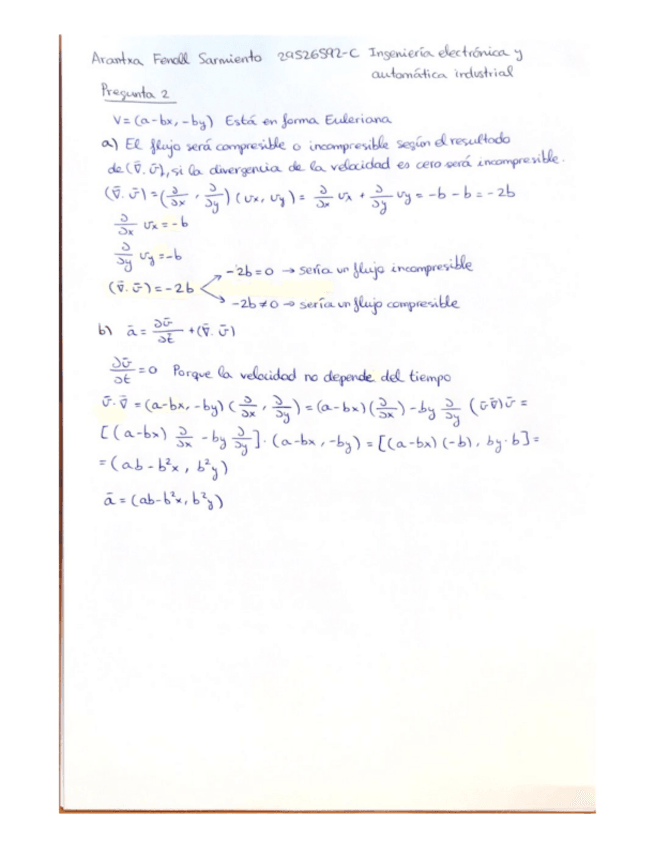 Arantxa Fenoll Sarmiento 29526592-C Ingeniería electrónica y
automática industrial
Pregunta 2
V=(a-bx,-by) Está en forma Euleriana
a) El flujo será compresible o incompresible según el resultado
de (∇̄·ῡ), si la divergencia de la velocidad es cero será incompresible.
(∇̄·ῡ)=(∂/∂x, ∂/∂y)(υx, υy)= ∂/∂x υx + ∂/∂y υy = -b - b = -2b
∂/∂x υx = -b
∂/∂y υy = -b
-2b=0 → sería un flujo incompresible
(∇̄·ῡ)=-2b
-2b≠0 → sería un flujo compresible
b) ā = ∂ῡ/∂t + (∇̄·ῡ)
∂ῡ/∂t = 0 Porque la velocidad no depende del tiempo
ῡ·∇̄ = (a-bx,-by)(∂/∂x, ∂/∂y) = (a-bx)(∂/∂x) - by ∂/∂y (ῡ∇̄)ῡ =
[(a-bx) ∂/∂x - by ∂/∂y]·(a-bx,-by) = [(a-bx)(-b), by·b] =
= (ab-b²x, b²y)
ā = (ab-b²x, b²y)